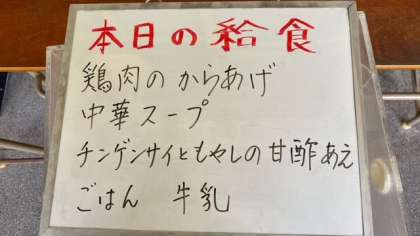 本日の給食
鶏肉のからあげ
中華スープ
チンゲンサイともやしの甘酢あえ
ごはん 牛乳